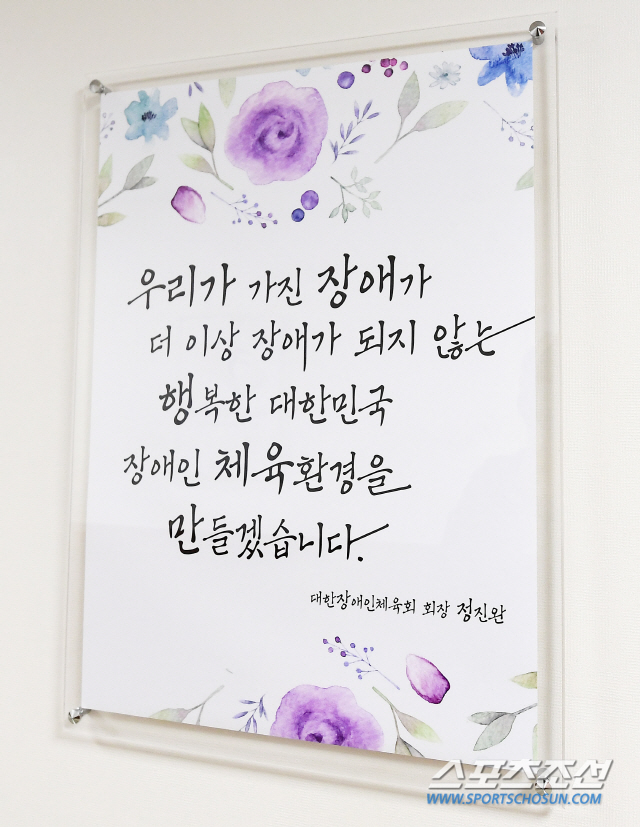 우리가 가진 장애가
더 이상 장애가 되지 않는
행복한 대한민국
장애인 체육환경을
만들겠습니다.
대한장애인체육회 회장 정진완
스포츠조선
WWW.SPORTSCHOSUN.COM